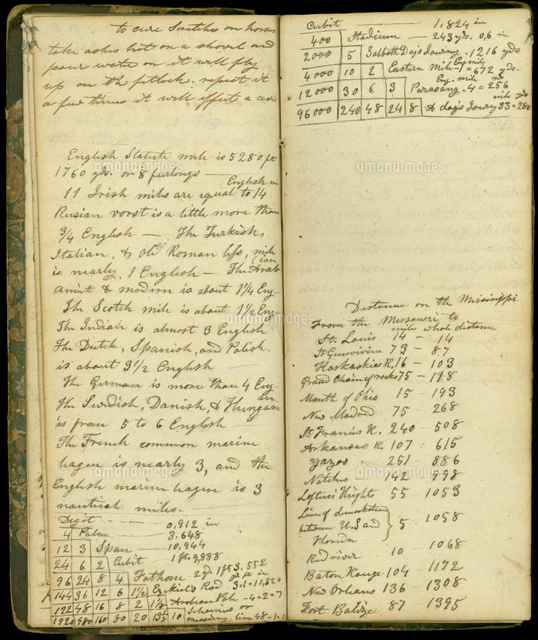 to cure Scratches on horses
take ashes hot on a shovel and
pour water on it will fly
up on the fetlock. repeat it
a few times it will effect a cure
English Statute mile is 5280 ft
1760 yds. or 8 furlongs —
11 Irish miles are equal to 14 English m
Rusian vorst is a little more than
3/4 English — The Turkish,
Italian, & old Roman less, mile
is nearly 1 English — The Arabian
antient & modern is about 1 1/4 Eng
The Scotch mile is about 1 1/2 Eng
The Indian is almost 3 English
The Dutch, Spanish, and Polish
is about 3 1/2 English —
The German is more than 4 Eng
The Swedish, Danish, & Hungarian
is from 5 to 6 English
The French common marine
league is nearly 3, and the
English marine league is 3
nautical miles.
Digit 0,912 in
4 Palm 3,648
12 3 Span 10,944
24 6 2 Cubit 1 ft 9,888
96 24 8 4 Fathom 2 yd 1 ft 3,552
144 36 12 6 1 1/2 Ezekiel's Rod
192 48 16 8 2 Arabian Pole
1920 480 160 80 20 10 Schoenus or measuring line 48
Cubit 1,824 in
400 Stadium — 243 yds. 0,6 in
2000 5 Sabbath Day's Journey - 1216 yds
4000 10 2 Eastern Mile Eng mile 1 = 672 yds.
12000 30 6 3 Parasang - 4 = 256
96000 240 48 24 8 A day's Journey 33 =
Distances on the Mississippi
From the Missouri to
mile whole distance
St. Louis 14 — 14
St Genevieve 73 - 87
Kaskaskia R, 16 - 103
Grand Chain of rocks 75 — 178
Mouth of Ohio 15 — 193
New Madrid 75 — 268
St Francis R. 240 — 508
Arkansas R, 107 - 615
Yazoo 251 - 886
Natchez 142 - 998
Loftus's Hights 55 1053
Line of demarkation
between U.S. and 5 - 1058
Florida
Red river 10 — 1068
Baton Rouge 104 1172
New Orleans 136 1308
Fort Balize 87 1395
amanaimages
amanaimages
amanaimages
amanaimages
amanaimages
amanaimages